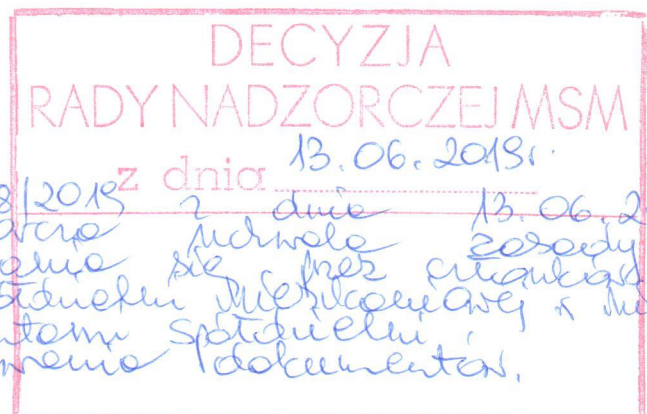 DECYZJA
RADY NADZORCZEJ MSM
z dnia 13.06.2019r.
8/2019 z dnia 13.06.2
uchwala zasady
się przez
Mieszkaniowej w
Spółdzielni i
dokumentów.